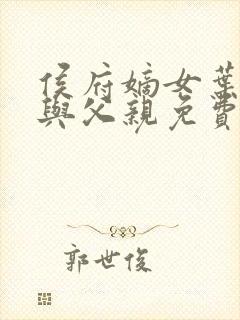 侯府嫡女葉
與父親免費
郭世俊